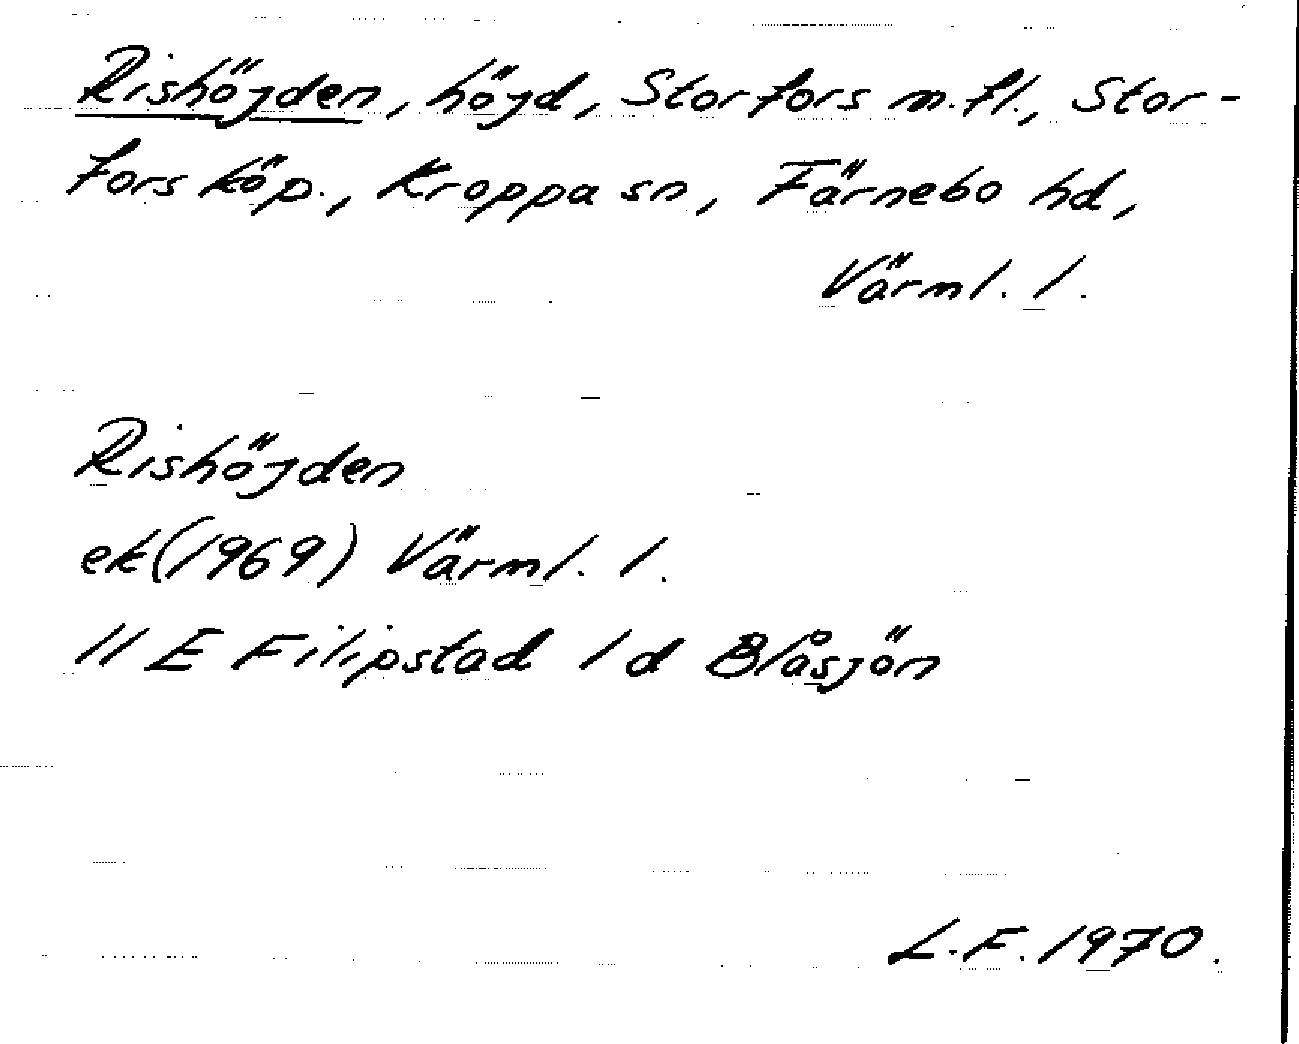 Rishöjden, höjd, Storfors m.fl., Stor-
fors köp., Kroppa sn, Färnebo hd,
Värml. l.
Rishöjden
ek(1969) Värml. l.
11 E Filipstad 1 d Blåsjön
L.F. 1970.